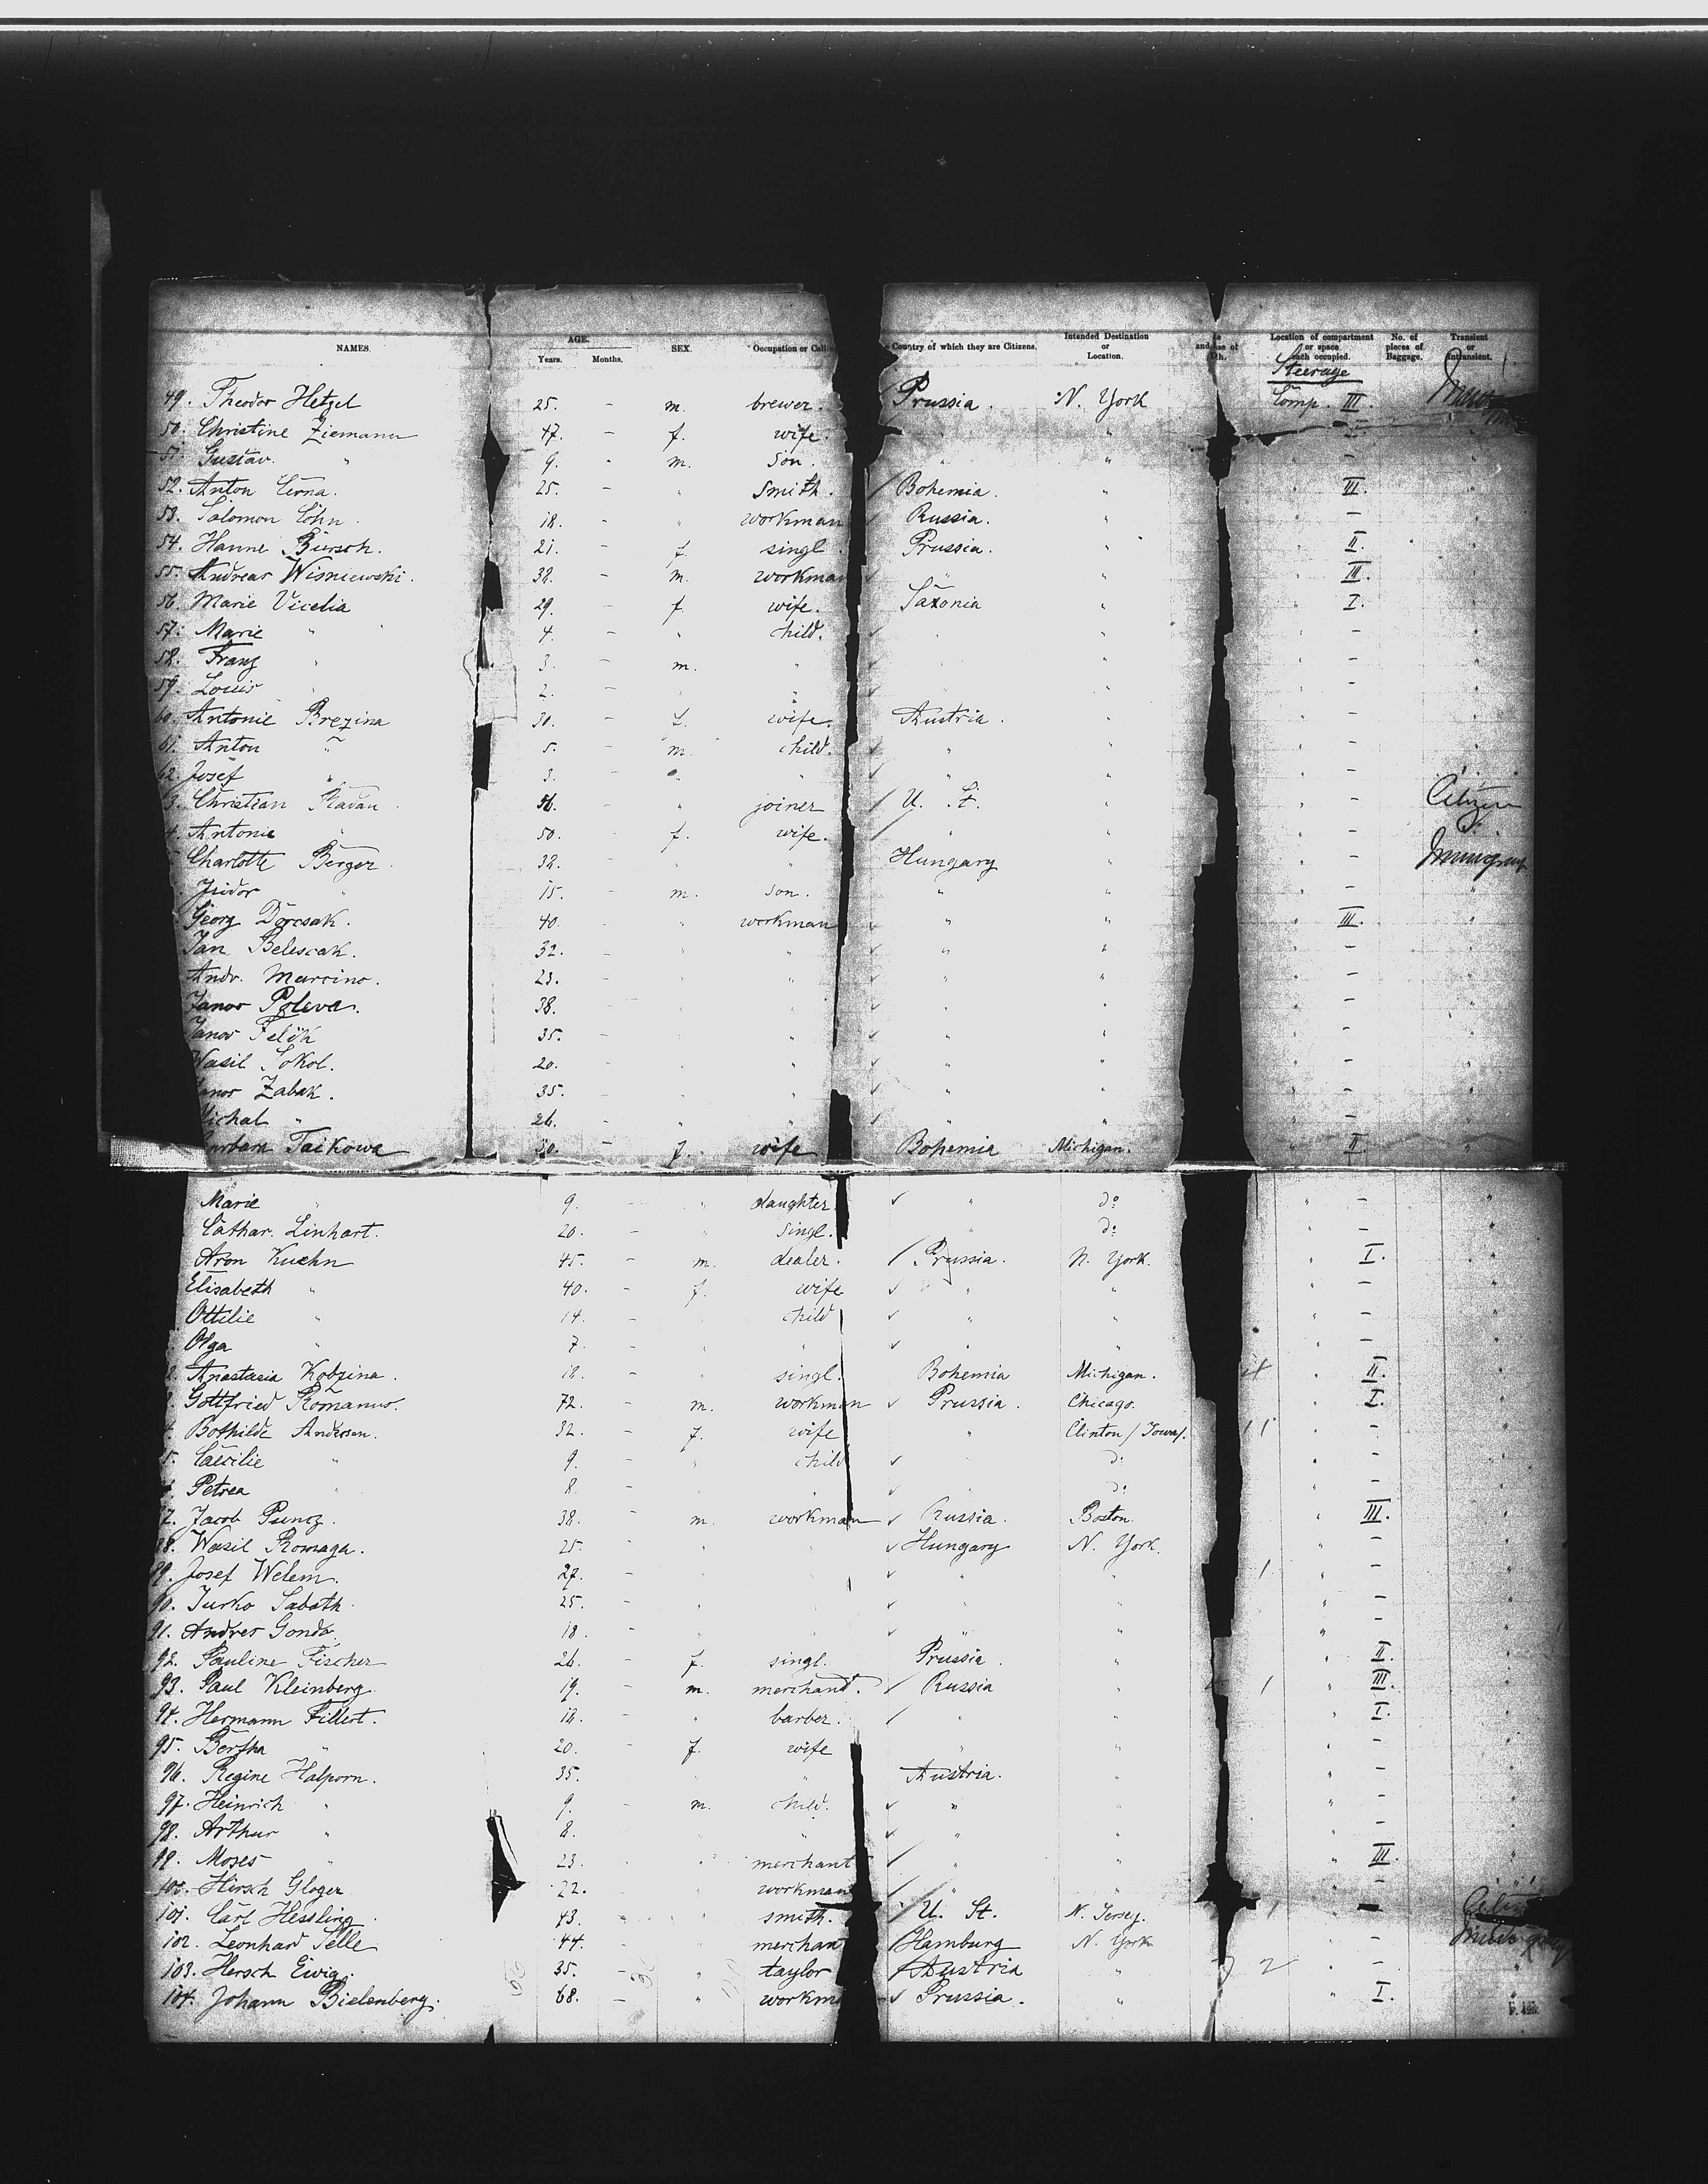 NAMES. AGE. Years. Months. SEX. Occupation or Country of which they are Citizens. Intended Destination or Location. Location of compartment or space each occupied. No. of pieces of Baggage. Transient or
Steerage
49. Theodor Hetzel 25. - m. brewer. Prussia. N. York Comp. III.
50. Christine Ziemann 47. - f. wife. " "
51. Gustav " 9. - m. son. " " -
52. Anton Cerna. 25. - " smith. Bohemia. " " III.
53. Salomon Cohn. 18. - " workman Russia. " " -
54. Hanne Bursch. 21. - f. singl. Prussia. " " II.
55. Andreas Wisniewski. 38. - m. workman " " " III.
56. Marie Vicelia 29. - f. wife. Saxonia " " I.
57. Marie " 4. - " child. " " " -
58. Franz " 3. - m. " " " " -
59. Louis " 2. - " " " " " -
60. Antonie Brezina 30. - f. wife. Austria. " " -
61. Anton " 5. - m. child. " " " -
62. Josef " 3. - " " " " " -
3. Christian 56. - " joiner U. St. " " - Citizen
4. Antonie " 50. - f. wife. " " " -
Charlotte Berger. 32. - " " Hungary " " -
Isidor " 15. - m. son. " " " -
Georg Dorcsak. 40. - " workman " " " III.
Jan Belescak. 32. - " " " " " -
Andr. Marcino. 23. - " " " " " -
Janos Poleva. 38. - " " " " " -
Janos 35. - " " " " " -
Wasil Sokol. 20. - " " " " " -
Zabak. 35. - " " " " " -
" 26. - " " " " " -
Taikowa 30. - f. wife Bohemia Michigan. " II.
Marie " 9. - " daughter " do " -
Cathar. Linhart. 20. - " singl. " do " -
Aron Kuehn 45. - m. dealer. Prussia. N. York. " I.
Elisabeth " 40. - f. wife " " " -
Ottilie " 14. - " child " " " -
Olga " 7. - " " " " " -
Anastasia Kobzina. 18. - " singl. Bohemia Michigan. " II.
Gottfried Romanus. 72. - m. workman Prussia. Chicago. " I.
Bothilde Andersen. 32. - f. wife " Clinton /Iowa/. " -
5. Caecilie " 9. - " child " do " -
Petrea " 8. - " " " do " -
7. Jacob Puncz. 38. - m. workman Russia. Boston. " III.
88. Wasil Romaga. 25. - " " Hungary N. York. " -
89. Josef Welem. 27. - " " " " " -
90. Jurko Sabath. 25. - " " " " " -
91. Andres Gonda 18. - " " " " " -
92. Pauline Fischer 26. - f. singl. Prussia. " " II.
93. Paul Kleinberg. 19. - m. merchand. Russia " " III.
94. Hermann Fillert. 18. - " barber. " " " I.
95. Bertha " 20. - f. wife " " " -
96. Regine Halporn. 35. - " " Austria. " " -
97. Heinrich " 9. - m. child. " " " -
98. Arthur " 8. - " " " " " -
99. Moses " 23. - " merchant " " " III.
100. Hirsch Gloger 22. - " workman " " " -
101. Carl Hessling. 43. - " smith. U. St. N. Jersey. " -
102. Leonhard Selle 44. - " merchan Hamburg N. York " -
103. Hersch Ewig. 35. - " taylor Austria " 2 " -
104. Johann Bielenberg. 68. - " workm Prussia. " " I.